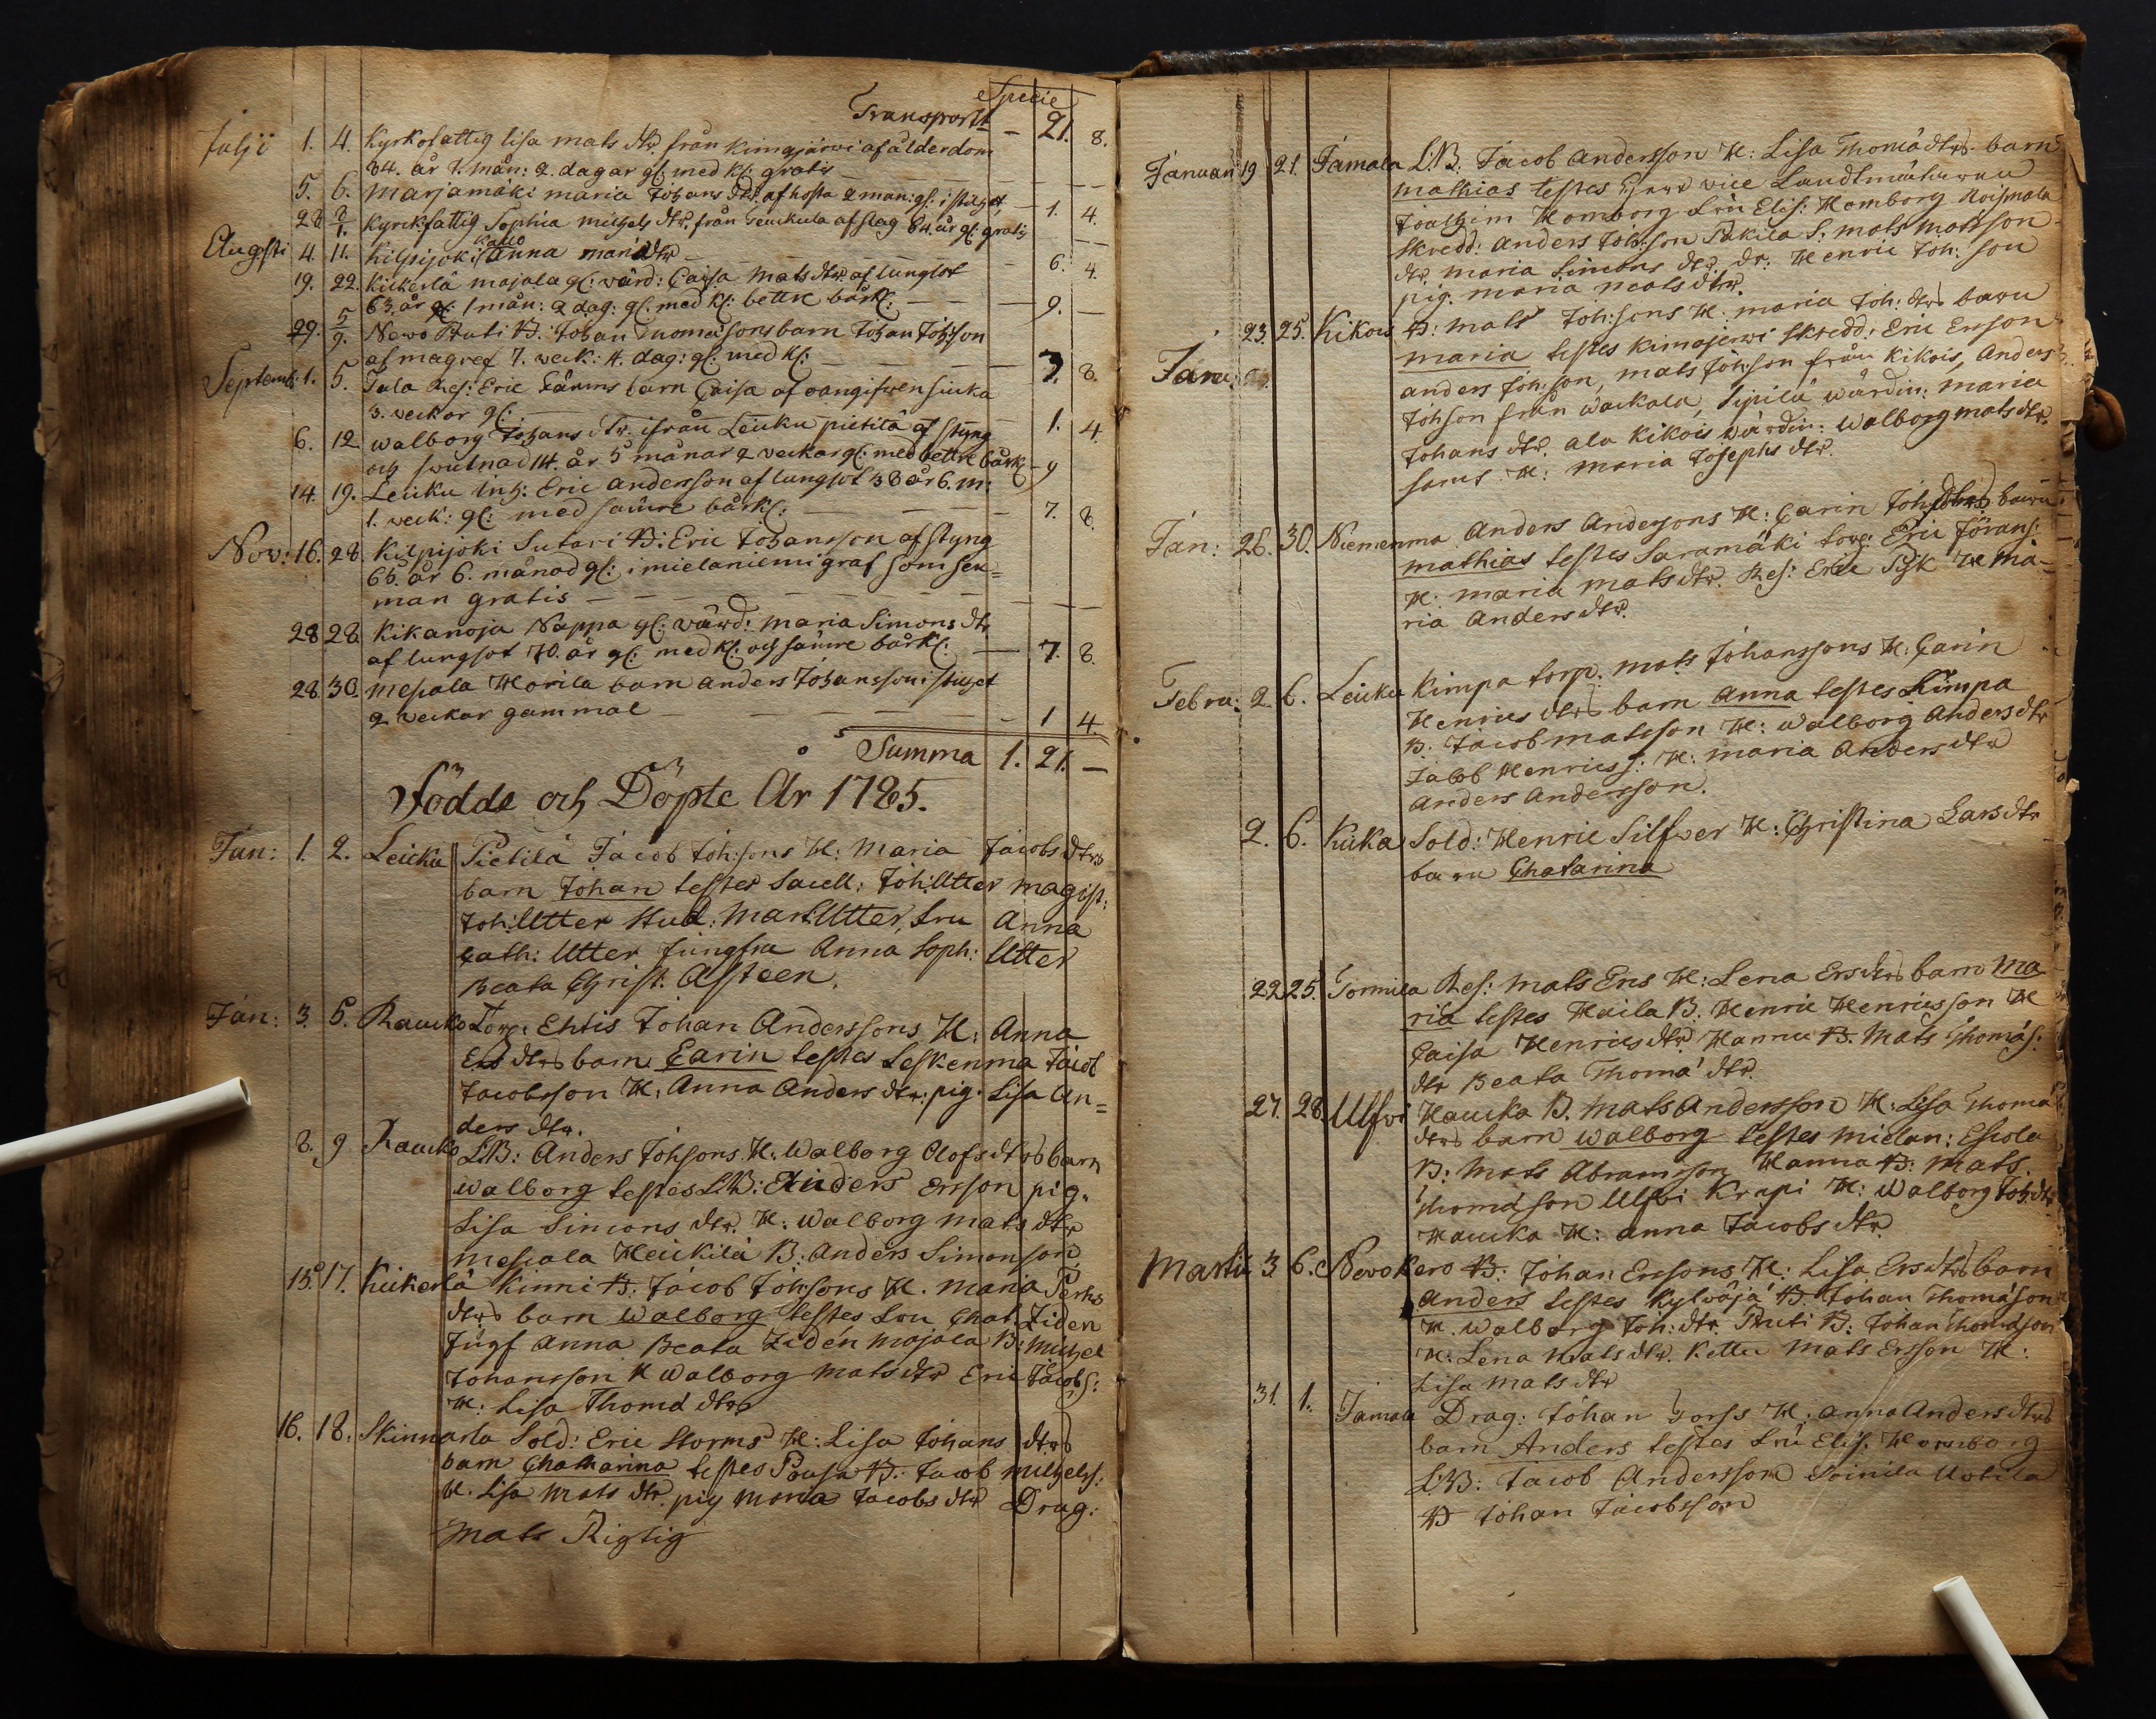 Specie
Transport - 21. 8.
Julii 1. 4. Kyrkofattig Lisa Mats dtr. från Kimajärwi af ålderdom
84. år 7. mån: 2. dagar gl: med Kl: gratis
5. 6. Marjamäki Maria Johans dtr. af hosta 2 mån: gl: i stillhet 1. 4.
28 8/1. Kyrckfattig Sophia Michels dtr. från Leuckula af slag 84. år gl: gratis
Kallo
Augsti 4. 11. Kilpijoki Anna Mariædtr 6. 4.
19. 22. Kickerlä Majala gl: wärd: Caisa Mats dtr. af lungsot
63. år gl: 1 mån: 2 dag: gl: med Kl: bettre bårkl: 9. —
29. 5/9. Newo Pruti B: Johan Thomæsons barn Johan Joh:son
af magref 7. weck: 4. dag: gl: med Kl: 7. 8.
Septemb: 1. 5. Jala Res: Eric Färms barn Caisa af oangifwen siuka
3. weckor gl: 1. 4.
6. 12 Walborg Johans dtr. ifrån Leuku Pietilä af styng
och swulnad 14. år 5 månar 2 veckor gl: med bettre bårk - 9
14. 19. Leuku Inh: Eric Andersson af lungsot 38 år 6. m:
1. weck: gl: med sämre bårkl: 7. 8.
Nov: 16. 28. Kilpijoki Sutari B: Eric Johansson af styng
65. år 6. månad gl: i Mielaniemi graf som sex=
man gratis
28 28. Kikanoja Nappa gl: wärd: Maria Simons dtr
af lungsot 70. år gl: med kl: och sämre bårkl: 7. 8.
28. 30. Mesiala Horila barn Anders Johansson: slaget
2 weckor gammal 1 4.
Summa 1. 21. —
Födde och Döpte År 1785.
Jan: 1. 2. Leicku Pietilä Jacob Joh:sons H: Maria Jacobs dtrs
barn Johan testes Sacell: Joh: Utter Magist:
Joh: Utter Stud: Mar: Utter, Fru Anna
Cath: Utter Jungfru Anna Soph: Utter
Beata Christ: Alsteen.
Jan: 3. 5. Raucko Torp: Ehtis Johan Anderssons H: Anna
Ers dtrs barn Carin testes Leskenma Jacob
Jacobsson H: Anna Anders dtr: pig: Lisa An=
ders dtr.
8. 9 Raucko LB: Anders Joh:sons H: Walborg Olofs dtrs barn
Walborg testes LB: Anders Ersson pig.
Lisa Simons dtr. H: Walborg Mats dtr
Mesiala Heickilä B: Anders Simonson
15. 17. Kickerlä Kinni B: Jacob Joh:sons H. Maria Pers
dtrs barn Walborg testes Fru Chat: Ziden
Jügf Anna Beata Zidén Majala B: Michel
Johansson H Walborg Mats dtr Eric Jacobs:
H: Lisa Thomæ dtr
16. 18. Skinnarla Sold: Eric Storms H: Lisa Johans dtrs
barn Chatharina testes Pousa B: Jacob Michels:
H. Lisa Mats dtr. pig Maria Jacobs dtr Drag:
Mats Rigtig
Januari 19 21. Jamala L.B. Jacob Andersson H: Lisa Thomædtrs barn
Mathias testes Herr vice Landtmätaren
Joachim Homborg Fru Elis: Homborg Koismala
Skredd: Anders Joh:son Pakila S. Mats Matsson
dtr. Maria Simons dtr. dr: Henric Joh: son
pig. Maria Mats dtr.
23. 25. Kikois B: Mats Joh:sons H: Maria Joh: dtrs barn
Maria testes Kimajerwi Skredd: Eric Erson
Janu:
Anders Joh:son, Mats Joh:son från Kikois, Anders
Johson från Wackala, Sipilä wärdin: Maria
Johans dtr. Ala Kikois wärdin: Walborg Mats dtr.
H: Maria Josephs dtr.
Jan: 26. 30. Niemenma Anders Andersons H: Carin Joh: dtrs barn
Mathias testes Saramäki torp: Eric Görans:
H: Maria Mats dtr. Res: Eric Pijk H: Ma-
ria Anders dtr.
Febru: 2. 6. Leicku Kimpa torp: Mats Johanssons H: Carin
Henrics dtrs barn Anna testes Kimpa
B: Jacob Matsson H: Walborg Anders dtr
Jacob Henrics: H: Maria Anders dtr
Anders Andersson.
2. 6. Kuka Sold: Henric Silfwer H: Christina Lars dtr
barn Chatarina
22 25. Tormila Res: Mats Ens H: Lena Ers dtrs barn Ma
ria testes Haila B. Henric Henricsson H
Caisa Henrics dtr Hannu B. Mats Thomæs:
dtr Beata Thomæ dtr.
27. 28. Ulfvi Haucka B. Mats Andersson H: Lisa Thomæ
dtrs barn Walborg testes Mielan: Eskola
B: Mats Abramsson Hannu B: Mats
Thomæson Ulfvi Krapi H: Walborg Joh: dtr
Haucka H: Anna Jacobs dtr.
Martii 3 6. Newo Kero B: Johan Ersons H: Lisa Ers dtrs barn
Anders testes Kylwäjä B: Johan Thomæson
H. Walborg Joh: dtr. Pruti B: Johan Thomæson
H: Lena Mats dtr. Kettu Mats Ersson H:
Lisa Mats dtr
31. 1. Jamala Drag: Johan Forss H: Anna Anders dtrs
barn Anders testes Fru Elis: Homborg
L:B: Jacob Andersson Soinila Uotila
B Johan Jacobsson